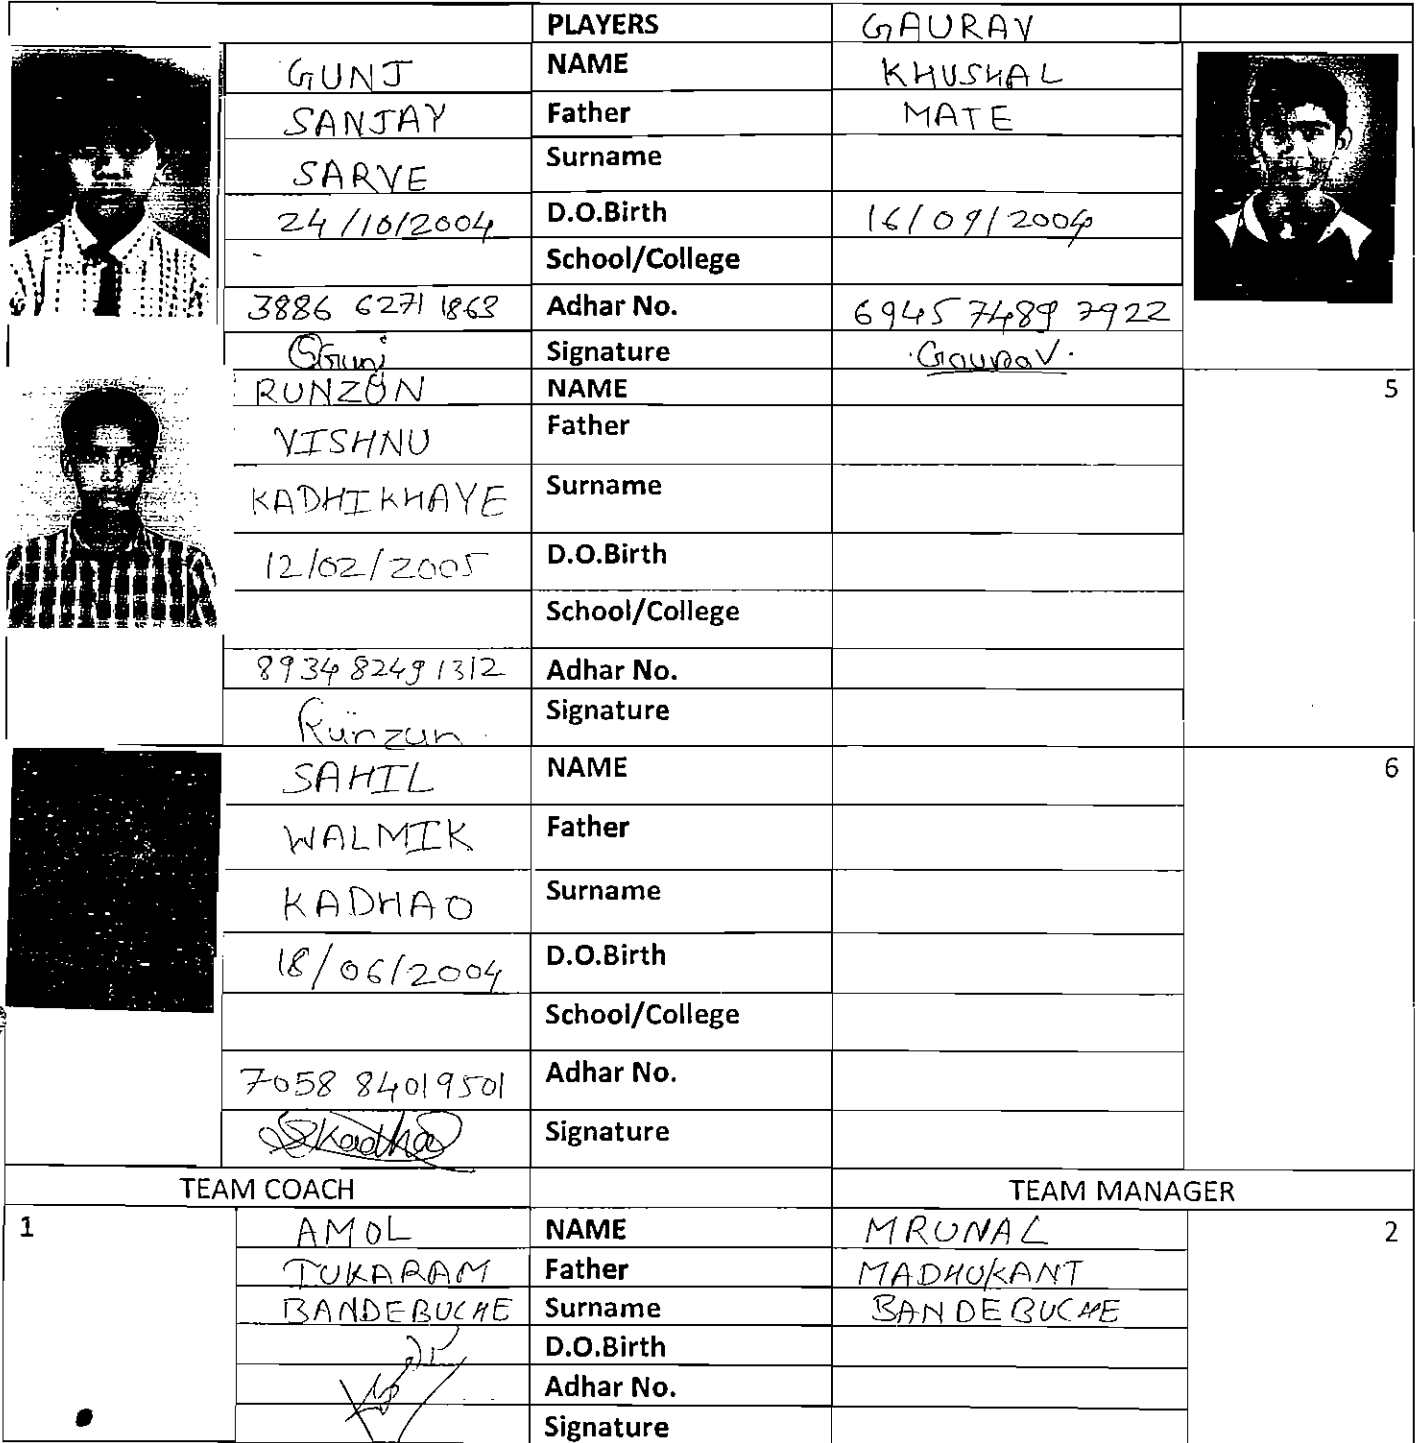 PLAYERS GAURAV
GUNJ NAME KHUSHAL
SANJAY Father MATE
SARVE Surname
24/10/2004 D.O.Birth 16/09/2004
- School/College
3886 6271 1863 Adhar No. 6945 7489 7922
Gunj Signature Gaurav
RUNZON NAME 5
VISHNU Father
KADHIKHAYE Surname
12/02/2005 D.O.Birth
School/College
8934 8249 1312 Adhar No.
Runzun Signature
SAHIL NAME 6
WALMIK Father
KADHAO Surname
18/06/2004 D.O.Birth
School/College
7058 8401 9501 Adhar No.
Signature
TEAM COACH TEAM MANAGER
1 AMOL NAME MRUNAL 2
TUKARAM Father MADHUKANT
BANDEBUCHE Surname BANDEBUCHE
D.O.Birth
Adhar No.
Signature